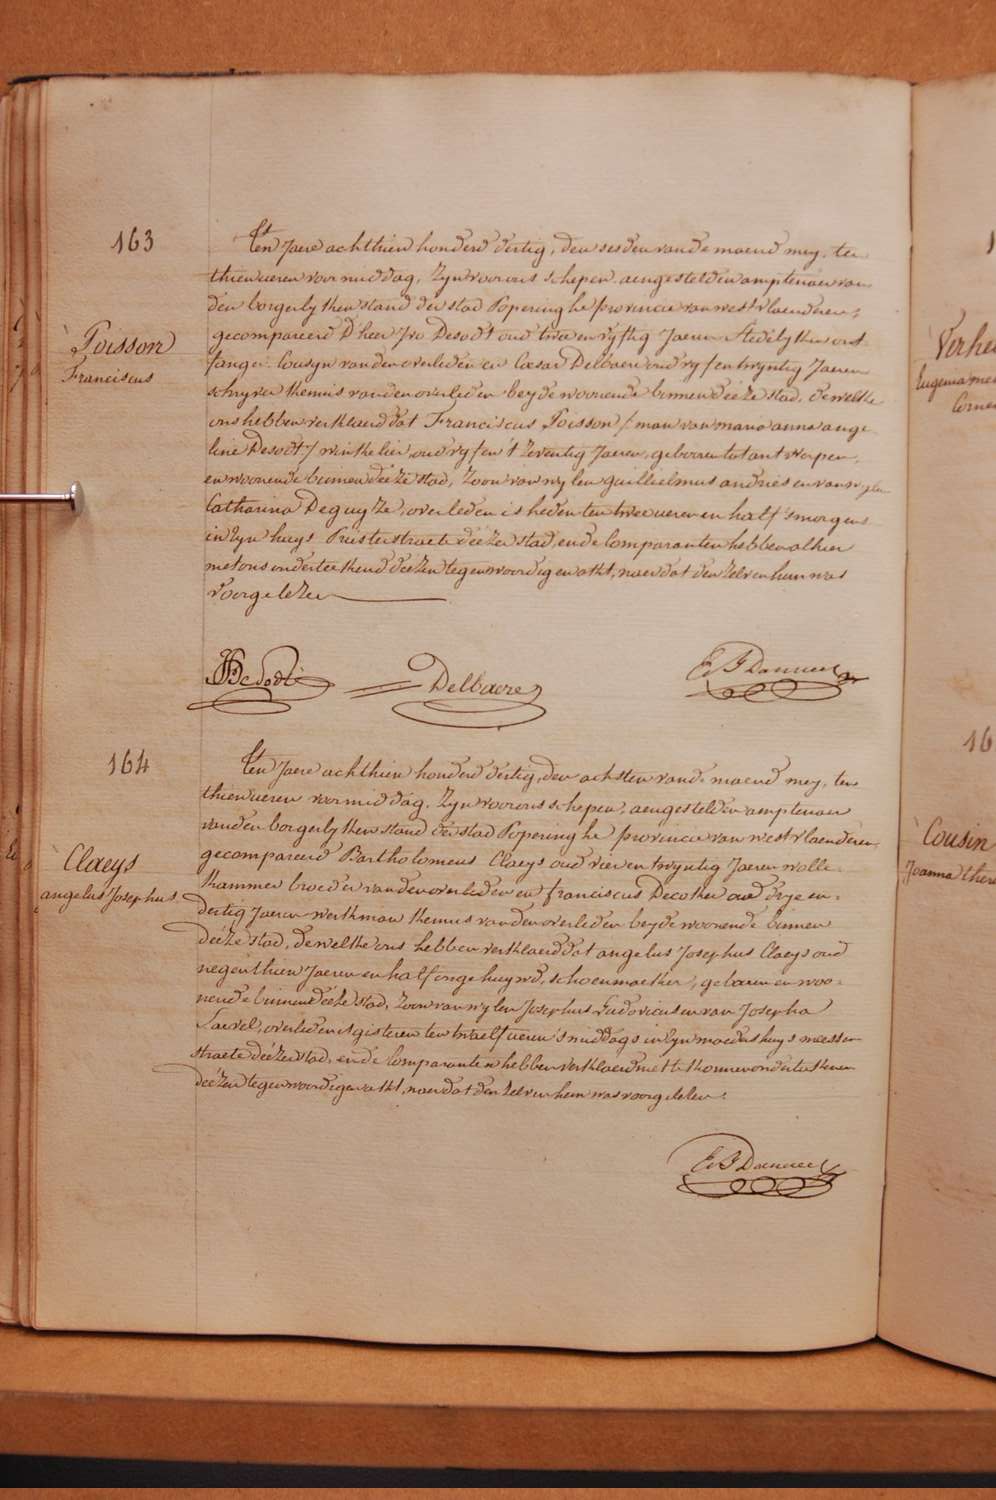 163
Poisson
Franciscus
Ten Jaere achthien honderd dertig, den sesden vande maend mey, ten
thien ueren voormiddag, Zyn voor ons schepen aengestelden amptenaer van
den borgerlyken stand der stad Poperinghe provincie van westvlaenderen,
gecompareerd D'heer Desodt oud twee en vyftig Jaeren Stedelyken ont-
fanger Cousyn van den overleden en Cæsar Delbaere oud vyf en twyntig Jaeren
schryver kennis van den overleden beyde woonende binnen déeze stad, dewelke
ons hebben verklaerd dat Franciscus Poisson / man van maria anna ange-
line Desodt / winkelier, oud vyf en 't zeventig Jaeren, gebooren tot antwerpen,
en woonende binnen déeze stad, Zoon van wylen guillielmus andries en van wylen
Catharina Deguytze, overleden is heden ten twee ueren en half 's morgens
in Zyn huys Priesterstraete déezer stad, en de Comparanten hebben alhier
met ons onderteekend déezen tegenwoordigen akt, naer dat den zelven hun was
voorgelezen
Desodt Delbaere E B Danneel
164
Claeys
angelus Josephus
Ten Jaere achthien honderd dertig, den achsten vande maend mey, ten
thien ueren voormiddag, Zyn voor ons schepen, aengestelden amptenaer
van den borgerlyken stand der stad Poperinghe provincie van westvlaenderen,
gecompareerd Bartholomeus Claeys oud vier en twyntig Jaeren wolle-
kammer broeder van den overleden en franciscus Decoker oud drye en
dertig Jaeren werkman kennis van den overleden beyde woonende binnen
déeze stad, dewelke ons hebben verklaerd dat angelus Josephus Claeys oud
negenthien Jaeren en half ongehuywd, schoenmaeker, gebooren en woo-
nende binnen déeze stad, Zoon van wylen Josephus Ludovicus en van Josepha
overleden is gisteren ten twaelf ueren 's middags in Zyn moeders huys meessen
straete déezer stad, en de Comparanten hebben verklaerd niet te konnen onderteekenen
déezen tegenwoordigen akt, naer dat den zelven hun was voorgelezen.
E B Danneel
Verhe
Eugenia
Corne
16
Cousin
Joanna there